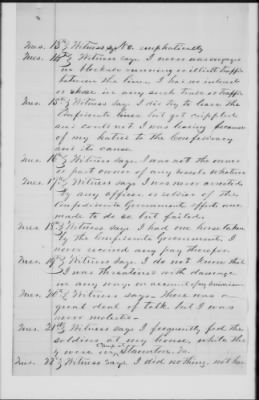 Inos. 13th Witness says No. emphatically
Inos. 14th Witness says I never was engaged
in blockade running or illicit traffic
between the lines, I had no interest
or share in any such trade or traffic
Inos. 15th Witness says I did try to leave the
Confederate lines but got crippled
and could not I was leaving because
of my hatred to the Confederacy
and its cause.
Inos. 16th Witness says I was not the owner
or part owner of any vessels whatever
Inos. 17th Witness says I was never arrested
by any officer or soldier of the
Confederate Government efforts were
made to do so but failed.
Inos. 18th Witness says I had one horse taken
by the Confederate Government, I
never received any pay therefor
Inos. 19th Witness says I do not know that
I was threatened with damage
in any way on account of my Unionism
Inos. 20th Witness says There was a
great deal of talk, but I was
never molested.
Inos. 21st Witness says I frequently fed the
soldiers at my house, while the
y were in Camp at Staunton, Va.
Inos. 22d Witness says I did nothing, not hav